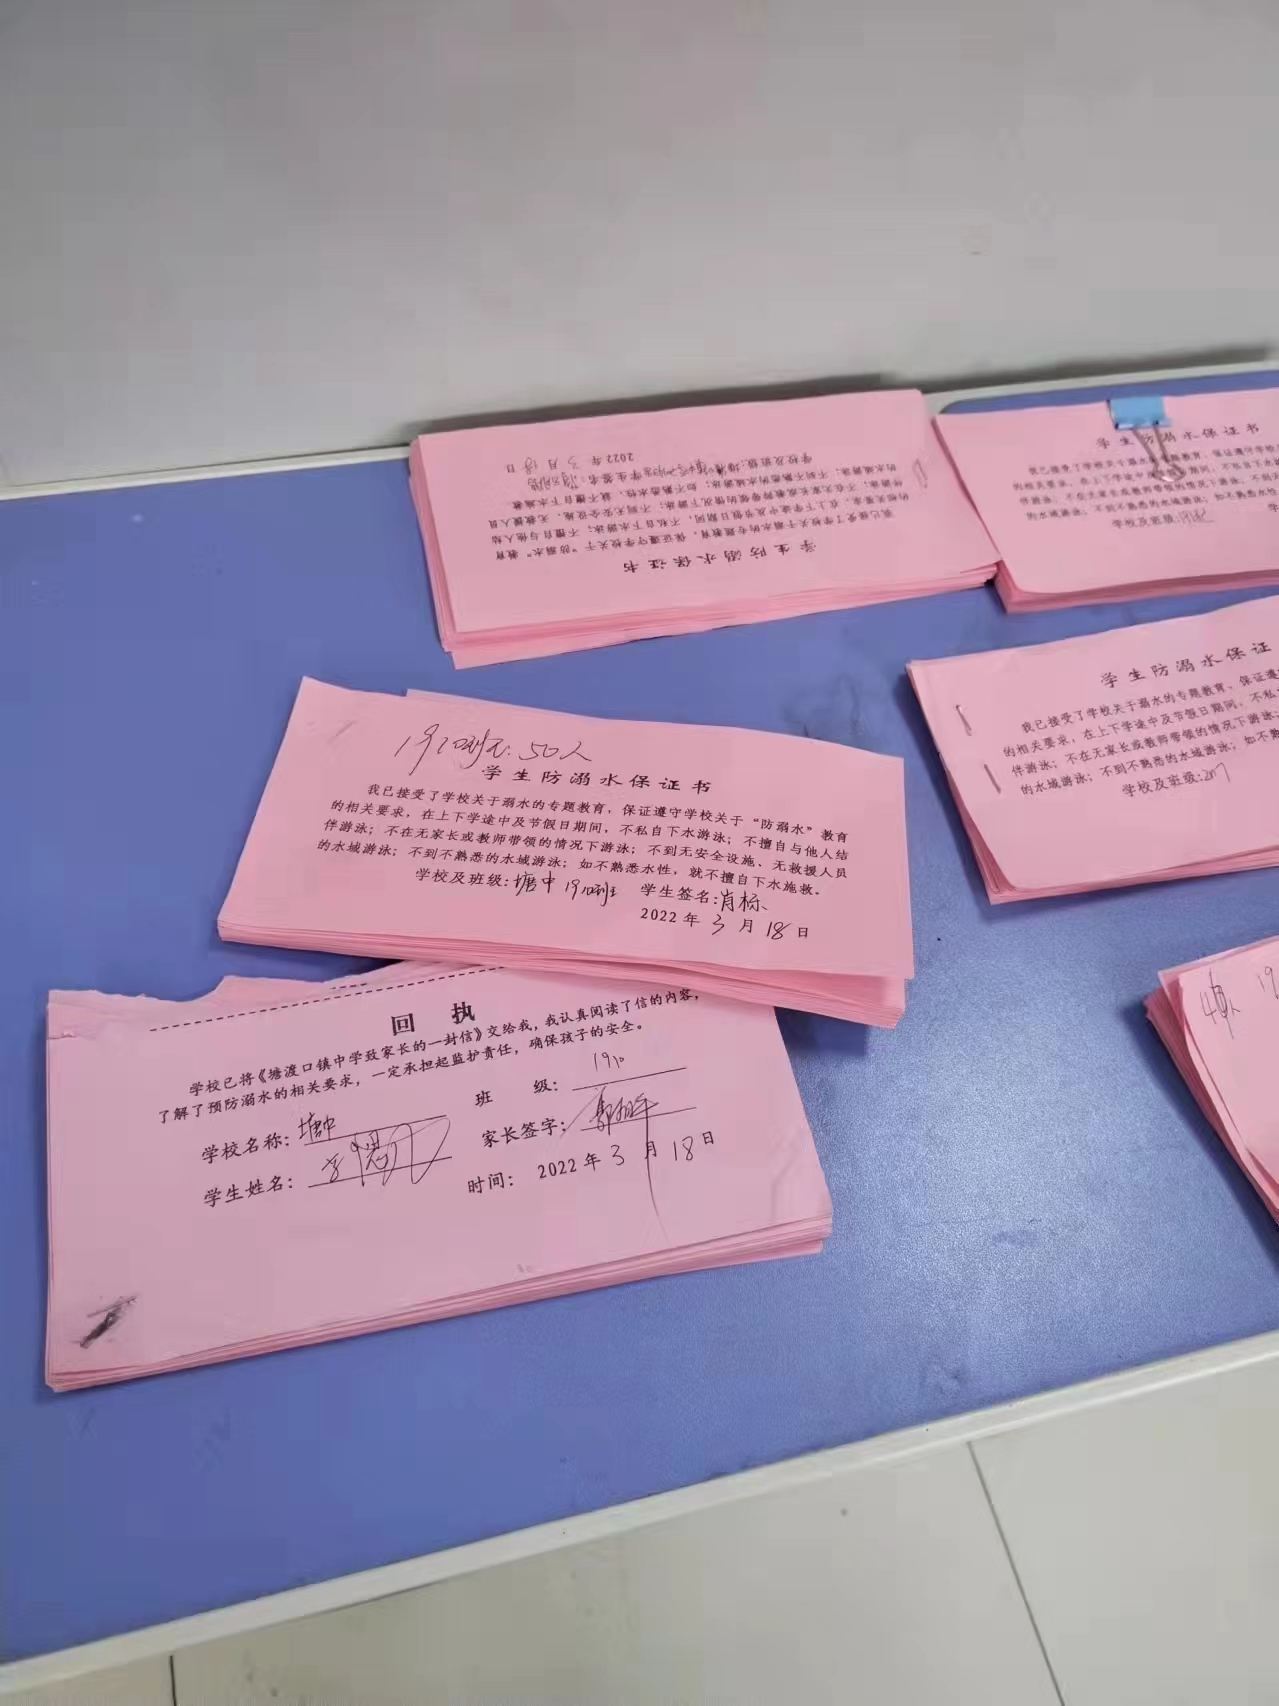 学生防溺水保证书
我已接受了学校关于溺水的专题教育，保证遵守学校关于“防溺水”教育
的相关要求，在上下学途中及节假日期间，不私自下水游泳；不擅自与他人结
伴游泳；不在无家长或教师带领的情况下游泳；不到无安全设施、无救援人员
的水域游泳；不到不熟悉的水域游泳；如不熟悉水性，就不擅自下水施救。
学校及班级:
学生签名:
2022年3月18日
学生防溺水保证书
我已接受了学校关于溺水的专题教育，保证遵守学校
的相关要求，在上下学途中及节假日期间，不私自下水
伴游泳；不在无家长或教师带领的情况下游泳；不到
的水域游泳；不到不熟悉的水域游泳；如不熟悉水性
学校及班级:
学生防溺水保证
我已接受了学校关于溺水的专题教育，保证遵
的相关要求，在上下学途中及节假日期间，不私
伴游泳；不在无家长或教师带领的情况下游泳；
的水域游泳；不到不熟悉的水域游泳；如不熟
学校及班级:207
1910班: 50人
学生防溺水保证书
我已接受了学校关于溺水的专题教育，保证遵守学校关于“防溺水”教育
的相关要求，在上下学途中及节假日期间，不私自下水游泳；不擅自与他人结
伴游泳；不在无家长或教师带领的情况下游泳；不到无安全设施、无救援人员
的水域游泳；不到不熟悉的水域游泳；如不熟悉水性，就不擅自下水施救。
学校及班级:塘中1910班 学生签名:肖栎
2022年3月18日
回 执
学校已将《塘渡口镇中学致家长的一封信》交给我，我认真阅读了信的内容，
了解了预防溺水的相关要求，一定承担起监护责任，确保孩子的安全。
学校名称: 塘中 班 级: 1910
学生姓名: 家长签字:
时间: 2022年3月18日